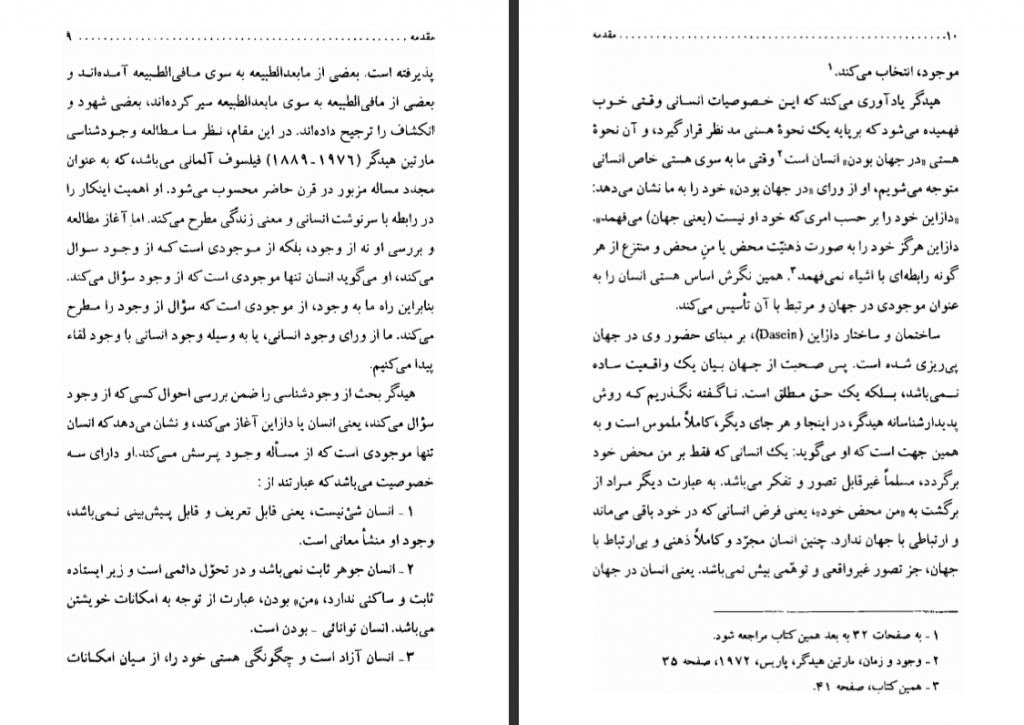 مقدمه ........................................ ۹
پذیرفته است. بعضی از مابعدالطبیعه به سوی مافی‌الطبیعه آمده‌اند و
بعضی از مافی‌الطبیعه به سوی مابعدالطبیعه سیر کرده‌اند، بعضی شهود و
انکشاف را ترجیح داده‌اند. در این مقام، نظر ما مطالعه وجودشناسی
مارتین هیدگر (۱۹۷۶-۱۸۸۹) فیلسوف آلمانی می‌باشد، که به عنوان
مجدد مساله مزبور در قرن حاضر محسوب می‌شود. او اهمیت اینکار را
در رابطه با سرنوشت انسانی و معنی زندگی مطرح می‌کند. اما آغاز مطالعه
و بررسی او نه از وجود، بلکه از موجودی است که از وجود سوال
می‌کند، او می‌گوید انسان تنها موجودی است که از وجود سؤال می‌کند.
بنابراین راه ما به وجود، از موجودی است که سؤال از وجود را مطرح
می‌کند. ما از ورای وجود انسانی، یا به وسیله وجود انسانی با وجود لقاء
پیدا می‌کنیم.
هیدگر بحث از وجودشناسی را ضمن بررسی احوال کسی که از وجود
سؤال می‌کند، یعنی انسان یا دازاین آغاز می‌کند، و نشان می‌دهد که انسان
تنها موجودی است که از مسأله وجود پرسش می‌کند.او دارای سه
خصوصیت می‌باشد که عبارتند از :
۱ - انسان شئ‌نیست، یعنی قابل تعریف و قابل پیش‌بینی نمی‌باشد،
وجود او منشأ معانی است.
۲ - انسان جوهر ثابت نمی‌باشد و در تحوّل دائمی است و زیر ایستاده
ثابت و ساکنی ندارد، «من» بودن، عبارت از توجه به امکانات خویشتن
می‌باشد. انسان توانائی - بودن است.
۳ - انسان آزاد است و چگونگی هستی خود را، از میان امکانات
۱۰ ........................................ مقدمه
موجود، انتخاب می‌کند.۱
هیدگر یادآوری می‌کند که این خصوصیات انسانی وقتی خوب
فهمیده می‌شود که بر پایه یک نحوهٔ هستی مد نظر قرار گیرد، و آن نحوهٔ
هستی «در جهان بودن» انسان است۲ وقتی ما به سوی هستی خاص انسانی
متوجه می‌شویم، او از ورای «در جهان بودن» خود را به ما نشان می‌دهد:
«دازاین خود را بر حسب امری که خود او نیست (یعنی جهان) می‌فهمد».
دازاین هرگز خود را به صورت ذهنیّت محض یا منِ محض و منتزع از هر
گونه رابطه‌ای با اشیاء نمی‌فهمد.۳ همین نگرش اساس هستی انسان را به
عنوان موجودی در جهان و مرتبط با آن تأسیس می‌کند.
ساختمان و ساختار دازاین (Dasein)، بر مبنای حضور وی در جهان
پی‌ریزی شده است. پس صحبت از جهان بیان یک واقعیت ساده
نمی‌باشد، بلکه یک حق مطلق است. ناگفته نگذریم که روش
پدیدارشناسانه هیدگر، در اینجا و هر جای دیگر، کاملاً ملموس است و به
همین جهت است که او می‌گوید: یک انسانی که فقط بر من محض خود
برگردد، مسلماً غیرقابل تصور و تفکر می‌باشد. به عبارت دیگر مراد از
برگشت به «من محض خود»، یعنی فرض انسانی که در خود باقی می‌ماند
و ارتباطی با جهان ندارد. چنین انسان مجرّد و کاملاً ذهنی و بی‌ارتباط با
جهان، جز تصور غیرواقعی و توهّمی بیش نمی‌باشد. یعنی انسان در جهان
۱ - به صفحات ۳۲ به بعد همین کتاب مراجعه شود.
۲ - وجود و زمان، مارتین هیدگر، پاریس، ۱۹۷۲، صفحه ۳۵
۳ - همین کتاب، صفحه ۴۱.